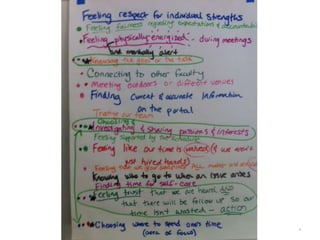 Feeling respect for individual strengths
Feeling fairness regarding expectations & accountability
Feeling physically energized - during meetings
and mentally alert
the goal or the task
Connecting to other faculty
Meeting outdoors or different venues
Finding current & accurate information
on the portal
our team
Choosing &
Investigating & sharing passions & interests
Feeling supported by our
Feeling like our time is valued (& we aren't
just hired hands)
Feeling
Knowing who to go to when an issue arises
Finding time for self-care
Feeling trust that we are heard AND
that there will be follow up so our
time isn't wasted - action
Choosing where to spend one's time
(area of focus)